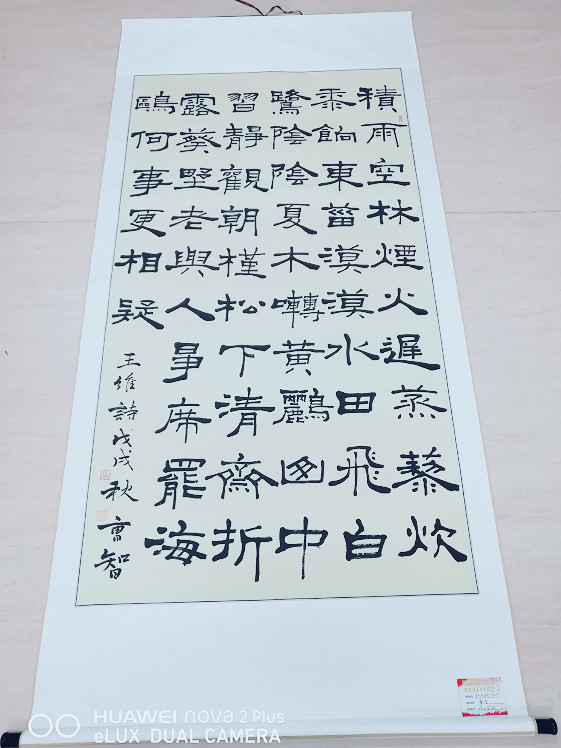 積雨空林煙火遲蒸藜炊
黍餉東菑漠漠水田飛白
鷺陰陰夏木囀黃鸝山中
習靜觀朝槿松下清齋折
露葵野老與人爭席罷海
鷗何事更相疑
王維詩戊戌秋曹智
HUAWEI nova 2 Plus
eLUX DUAL CAMERA